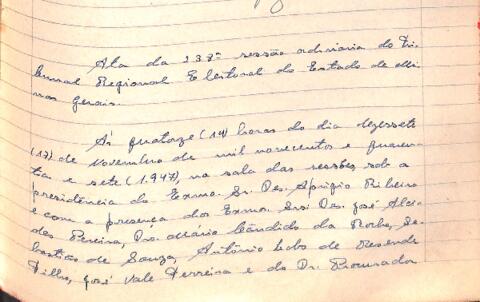 Ata da 238ª sessão ordinaria do Tri-
bunal Regional Eleitoral do Estado de Mi-
nas Gerais.
Ás quatorze (14) horas do dia dezessete
(17) de Novembro de mil novecentos e quaren-
ta e sete (1.947), na sala das sessões, sob a
presidência do Exmo. Sr. Des. Aprigio Ribeiro
e com a presença dos Exmos. Srs. Des. José Alci-
des Pereira, Drs. Mário Cândido da Rocha, Se-
bastião de Souza, Antônio Lobo de Resende
Filho, José Vale Ferreira e do Dr. Procurador